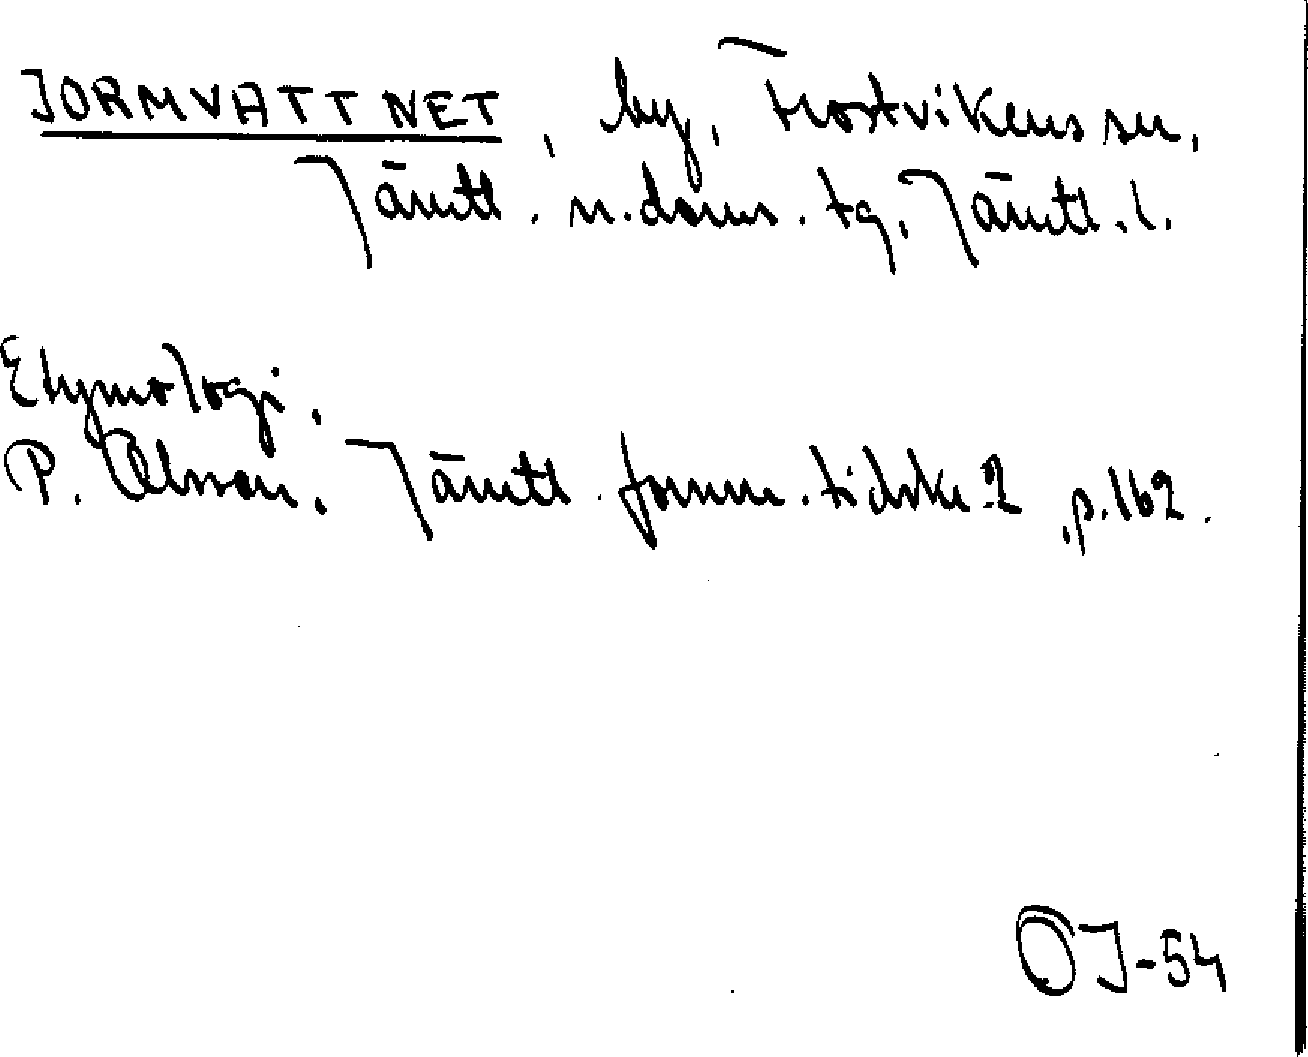 JORMVATTNET, by, Frostvikens sn,
Jämtl. n. doms. tg, Jämtl. l.
Etymologi.
P. Olsson. Jämtl. fornm. tidskr. 2, p. 162.
OJ-54